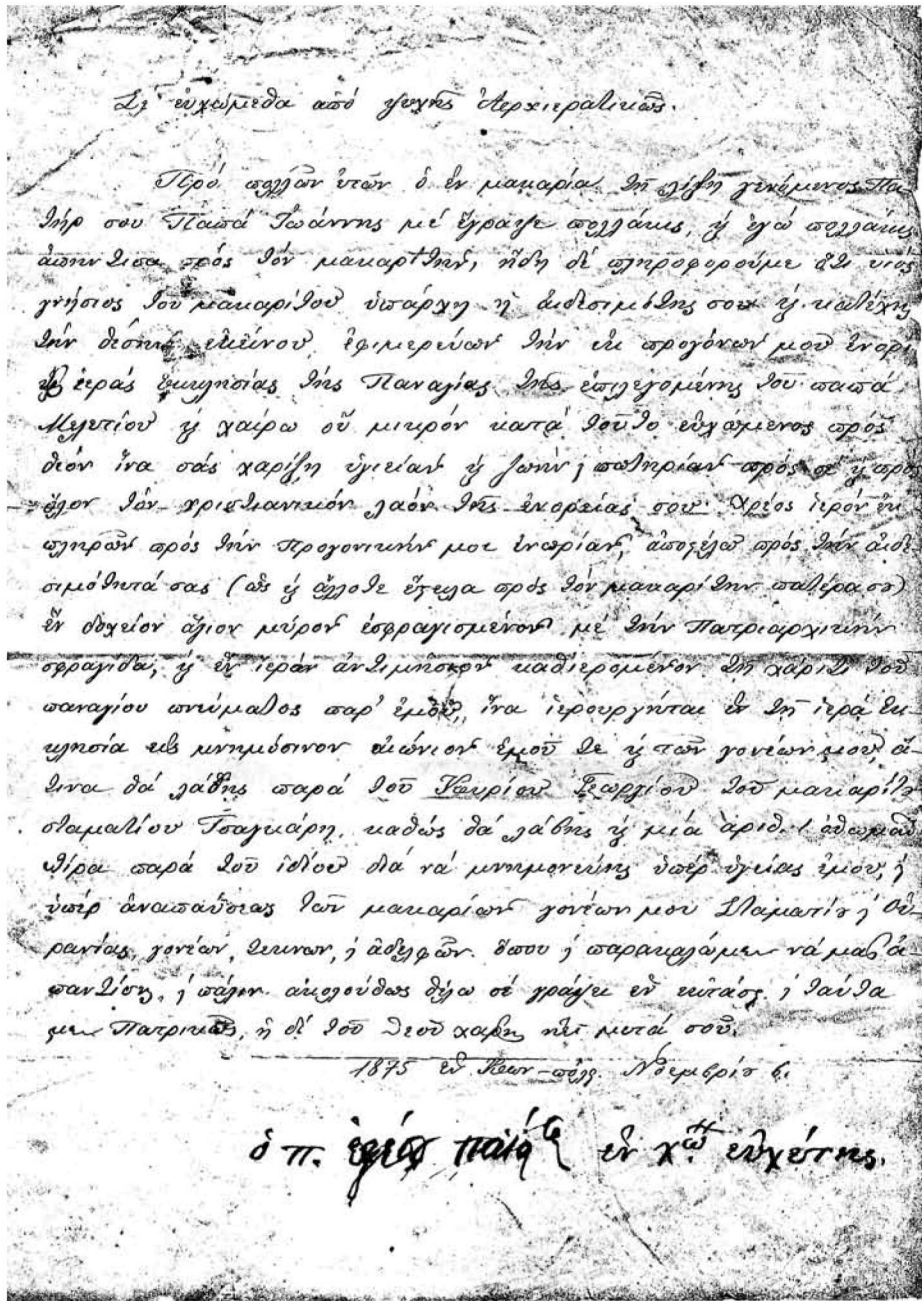 Σέ εὐχώμεθα από ψυχῆς Ἀερχιερατικῶς.
Πρό πολλῶν ἐτῶν ὁ ἐν μακαρία τῇ λήξῃ γενόμενος Πα-
τήρ σου Παπά Ἰωάννης μέ ἔγραψε πολλάκις, ἤ ἐγώ πολλάκις
ἀπήντισα πρός τόν μακαρίτην, ἤδη δέ πληροφορούμε ὅτι υιός
γνήσιος του μακαρίτου ὑπάρχη ἡ αιδεσιμότης σου ἤ κατέχης
τήν θέσην εκείνου, ἐφιμερεύων τήν ἐκ προγόνων μου ἐνορί
ἱεράς ἐκκλησίας τῆς Παναγίας της επιλεγομένης του παπά
Μελετίου ἤ χαίρω οὔ μικρόν κατά τοῦτο εὐχώμενος πρός
θεόν ἵνα σάς χαρίξῃ ὑγιείαν ἤ ζωήν, σωτηρίαν πρός σέ ἤ πρό
ὅλον τόν χριστιανικόν λαόν της ἐνορείας σου. Χρέος ἱερόν ἐκ
πληρῶν πρός τήν προγονικήν μου ἐνωρίαν, ἀποστέλω πρός τήν αιδε
σιμότητά σας (ὡς ἤ ἄλλοτε ἔστειλα πρός τόν μακαρίτην πατέρα σου)
ἕν δοχείον ἅγιον μύρον ἐσφραγισμένον μέ τήν Πατριαρχικήν
σφραγίδα, ἤ ἕν ἱερόν ἀντιμήσιον καθιερομένον τῇ χάριτι τοῦ
παναγίου πνεύματος παρ' ἐμοῦ, ἵνα ἱερουργήται ἐν τῇ ἱερά ἐκ
κλησία εἰς μνημόσινον αιώνιον ἐμοῦ τε ἤ τῶν γονέων μου, ἅ
τινα θά λάβης παρά τοῦ Κωυρίου Γεωργίου τοῦ μακαρίτου
σταματίου Τσαγκάρη, καθώς θά λάβης ἤ μία ἀριθ. 1 ὀθωμαν
λίρα παρά τοῦ ἰδίου διά νά μνημονεύης ὑπέρ ὑγείας ἐμου, ἤ
ὑπέρ ἀναπαύσεως τῶν μακαρίων γονέων μου Σταματίου ἤ Οὐ
ρανίας, γονέων, τέκνων, ἤ ἀδελφῶν. ὅπου ἤ παρακαλώμεν νά μας ἀ-
παντίσης, ἤ πάλιν ακολούθως θέλω σέ γράψει ἐν ἐκτάσει, ἤ ταύτα
μεν Πατρικῶς, ἡ δέ τοῦ Θεοῦ χάρις εἴη μετά σοῦ.
1875 ἐν Κων-πόλη. Νοεμβρίου 6.
ὁ π. ἐφέσου παΐσιος ἐν χ.ῷ εὐχέτης.